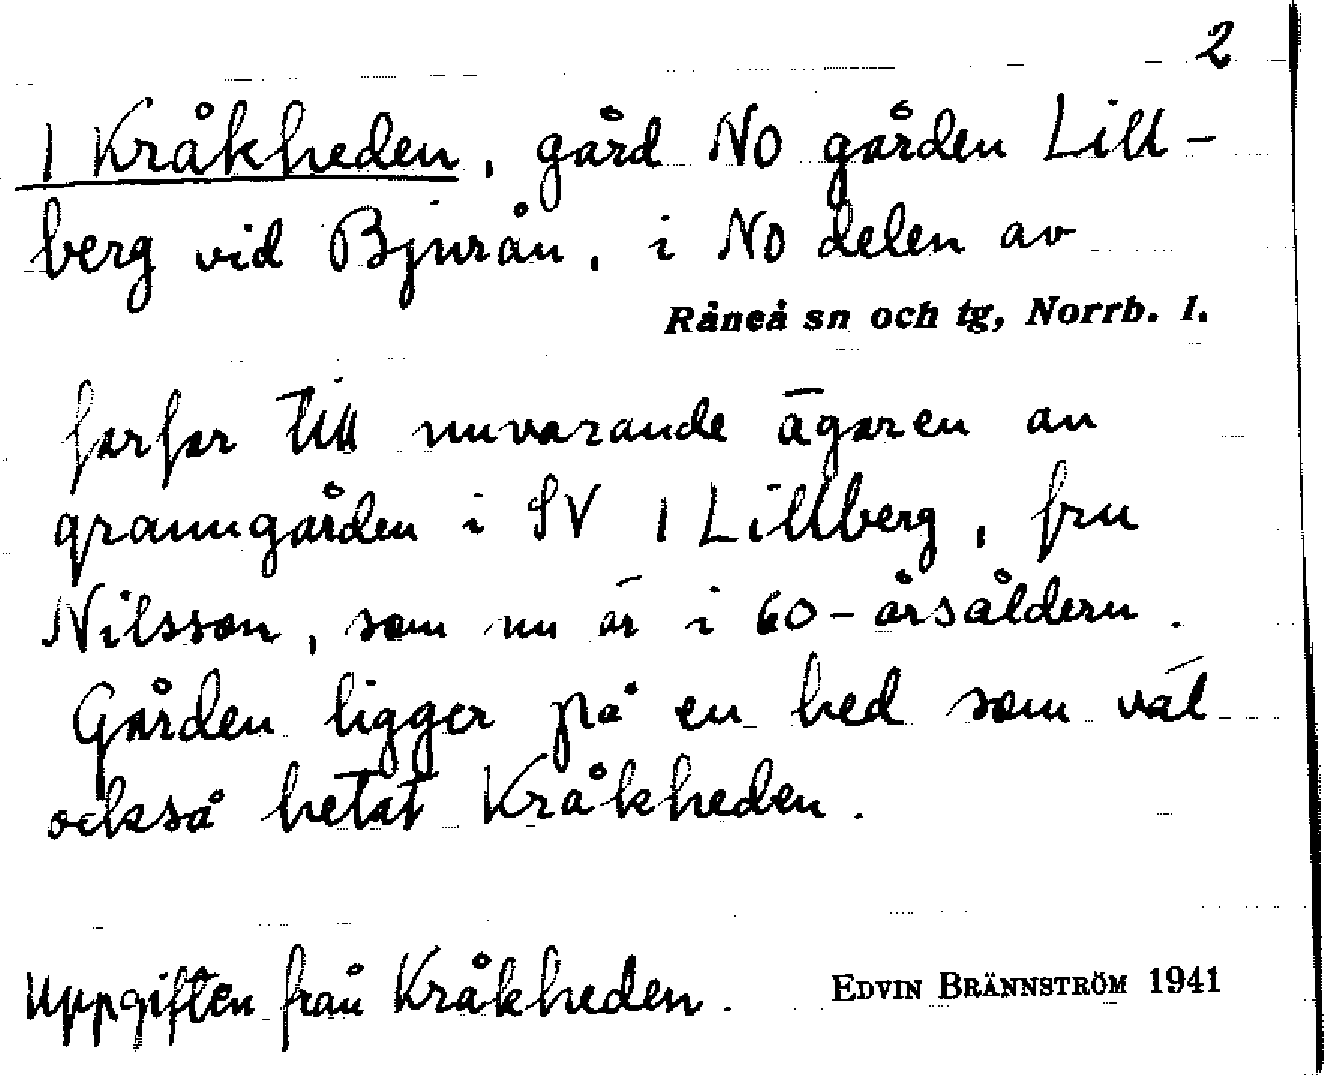 2
1 Kråkheden, gård NO gården Lill-
berg vid Bjurån, i NO delen av
Råneå sn och tg, Norrb. l.
farfar till nuvarande ägaren av
granngården i SV 1 Lillberg, fru
Nilsson, som nu är i 60-årsåldern.
Gården ligger på en hed som väl
också hetat Kråkheden.
Uppgiften från Kråkheden.
EDVIN BRÄNNSTRÖM 1941